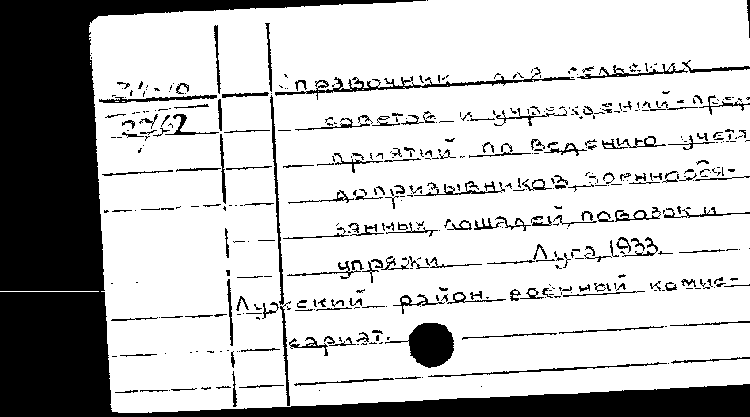 34-10
27/62
Справочник для сельских
советов и учреждений-пред-
приятий по ведению учета
допризывников, военнообя-
занных, лошадей, повозок и
упряжи. Луга, 1933.
Лужский район. военный комис-
сариат.